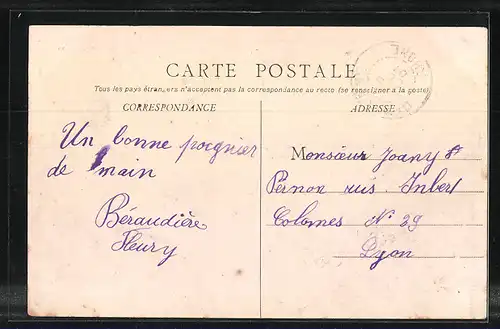 CARTE POSTALE
Tous les pays étrangers n'acceptent pas la correspondance au recto (se renseigner à la poste)
CORRESPONDANCE
ADRESSE
Un bonne pocgnier
de main
Béraudière
Fleury
Monsieur Joany St
Pernon ruis Inbert
Colomes No 39
Lyon